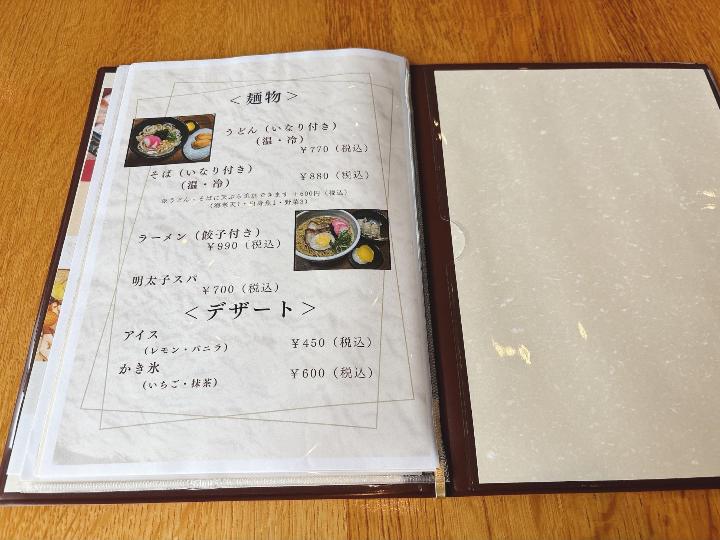 ＜麺物＞
うどん（いなり付き）
（温・冷）
￥770（税込）
そば（いなり付き）
（温・冷）
￥880（税込）
※うどん・そばに天ぷら追加できます ＋600円（税込）
（海老天1・白身魚1・野菜3）
ラーメン（餃子付き）
￥990（税込）
明太子スパ
￥700（税込）
＜デザート＞
アイス
（レモン・バニラ）
￥450（税込）
かき氷
（いちご・抹茶）
￥600（税込）